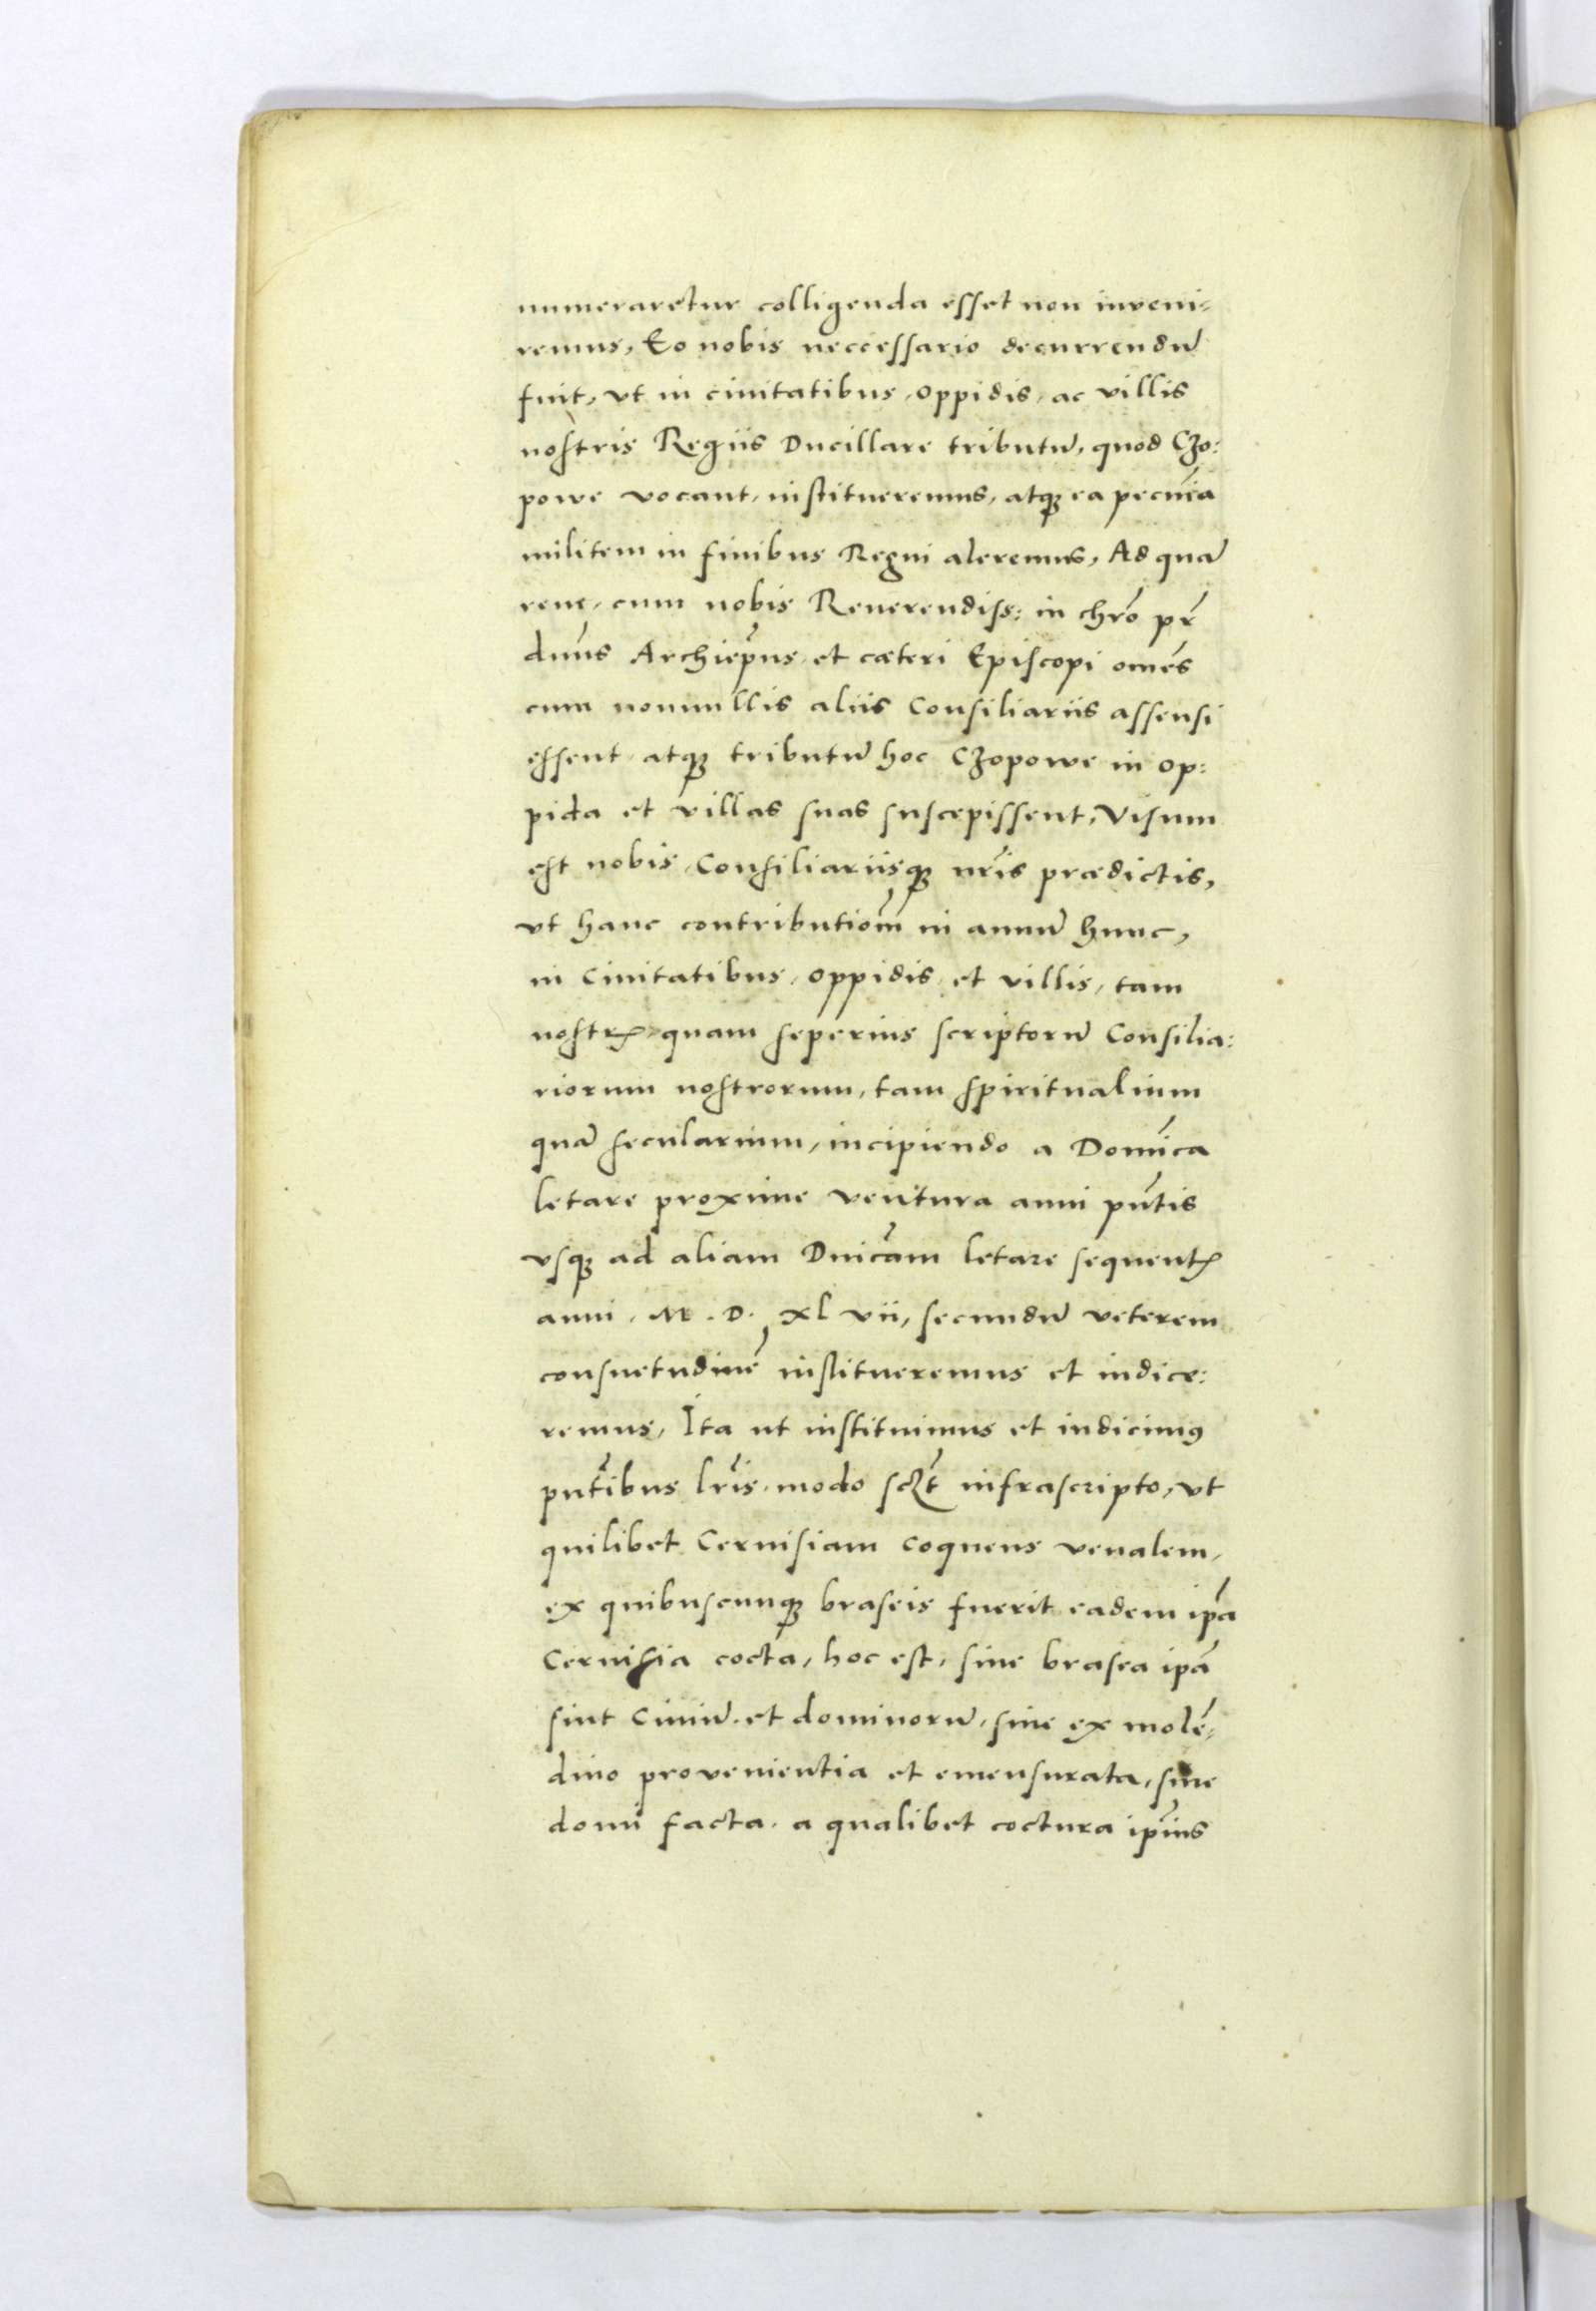 numeraretur colligenda esset non inveni-
remus, Eo nobis neccessario decurrendū
fuit, vt in ciuitatibus, oppidis, ac villis
nostris Regiis Ducillare tributū, quod Czo:
powe vocant, institueremus, atq̧ ea pecūia
militem in finibus Regni aleremus, Ad quā
rem, cum nobis Reuerendiss: in chr̄o pr̄
dn̄us Archiep̄us, et cæteri Episcopi om̄es
cum nonnullis aliis Consiliariis assensi
essent, atq̧ tributū hoc Czopowe in op:
pida et villas suas suscepissent, Visum
est nobis, Consiliariisq̧ nr̄is prædictis,
vt hanc contributiōm in annū hunc,
in Ciuitatibus, oppidis, et villis, tam
nostrꝝ, quam seperius scriptorū Consilia:
riorum nostrorum, tam spiritualium
quā secularium, incipiendo a Domīca
letare proxime ventura anni pn̄tis
vsq̧ ad aliam Dnicām letare sequentꝭ
anni. M. D. xl vii, secundū veterem
consuetudinē institueremus et indice:
remus, Ita ut instituimus et indicimꝰ
pn̄tibus lr̄is, modo sczt̄ infrascripto, vt
quilibet Ceruisiam coquens venalem,
ex quibuscunq̧ braseis fuerit eadem ip̄a
Ceruisia cocta, hoc est, siue brasea ip̄a
sint Ciuiū, et dominorū, siue ex molē-
dino provenientia et emensurata, siue
domi facta, a qualibet coctura ip̄ius